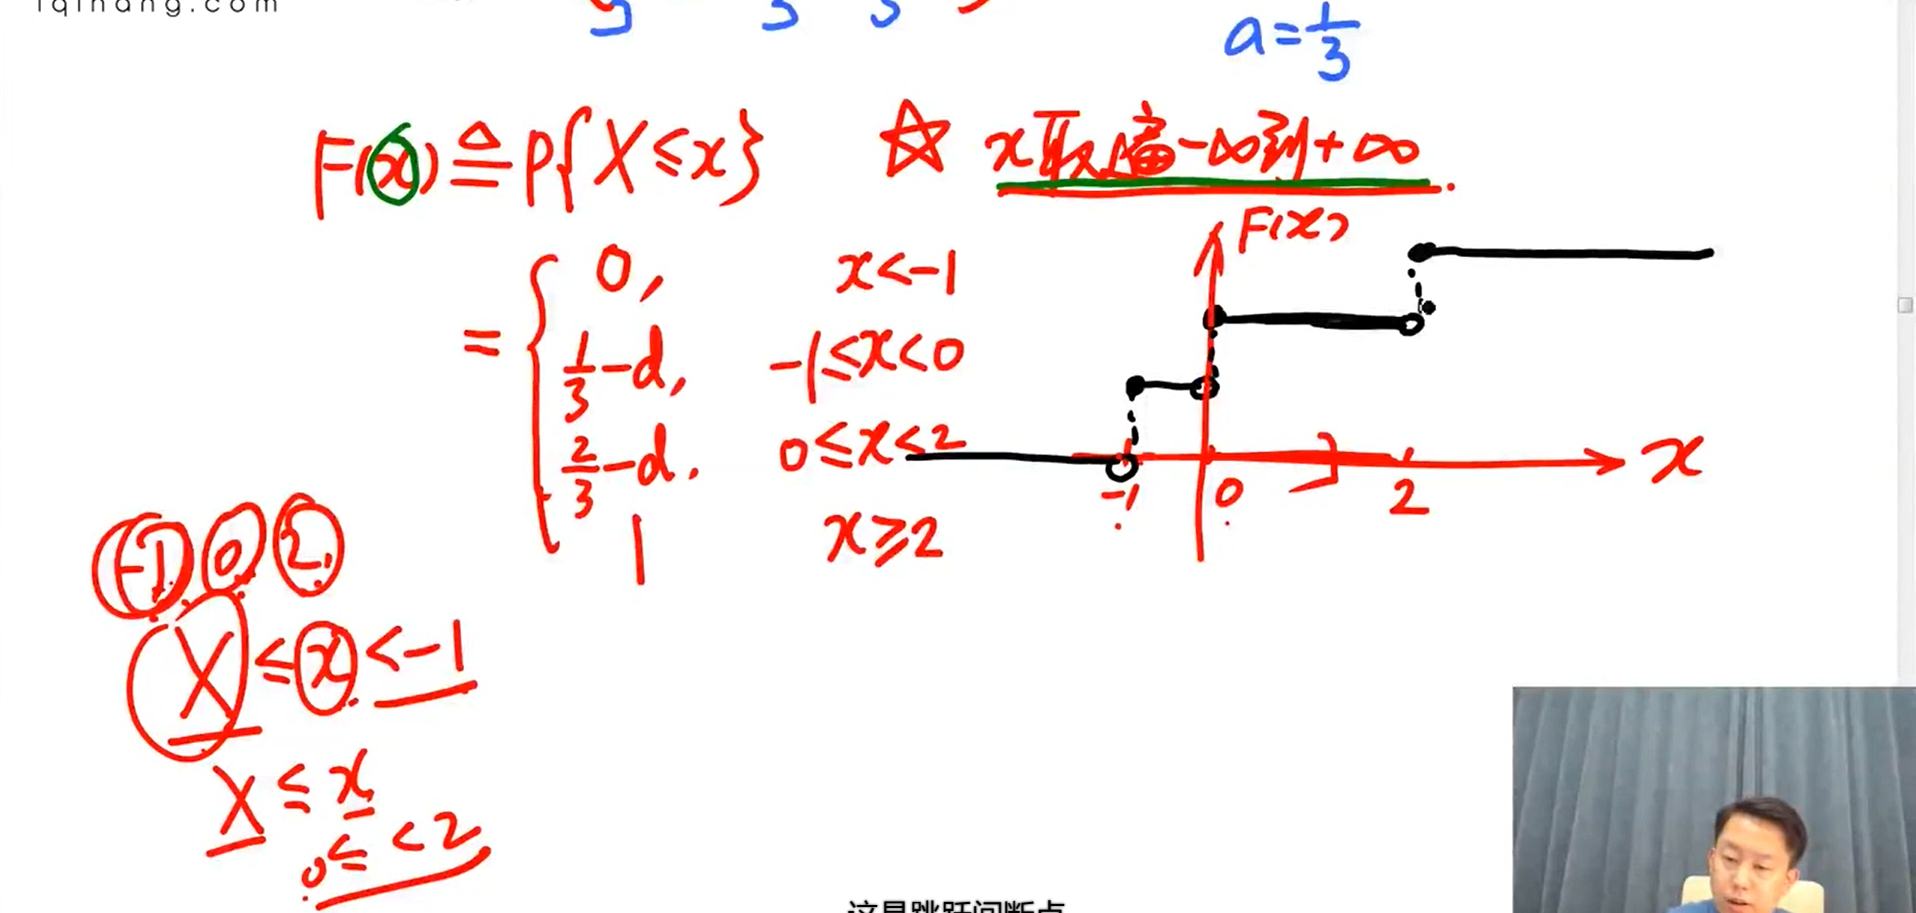 iqihang.com
a=1/3
F(x)≜P{X≤x} ☆ x取遍-∞到+∞
F(x)
={ 0, x<-1
1/3-d, -1≤x<0
2/3-d, 0≤x<2
1 x≥2
-1 0 2 x
-1 0 2
X≤x<-1
X≤x
0≤ <2
这是跳跃间断点